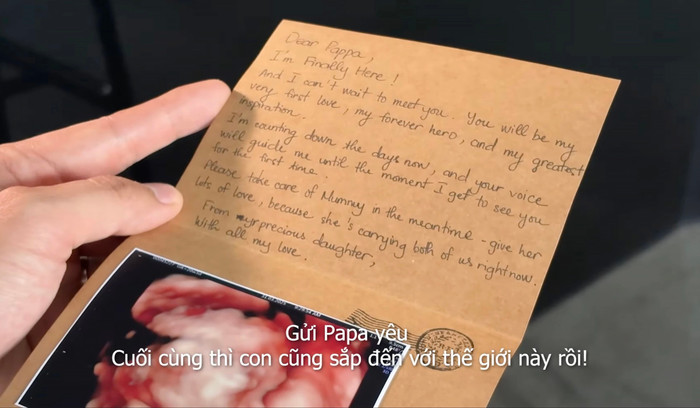 Dear Pappa,
I'm Finally Here!
And I can't wait to meet you. You will be my
very first love, my forever hero, and my greatest
inspiration.
I'm counting down the days now, and your voice
will guide me until the moment I get to see you
for the first time.
Please take care of Mummy in the meantime - give her
lots of love, because she's carrying both of us right now.
From yr precious daughter,
With all my love.
Gửi Papa yêu
Cuối cùng thì con cũng sắp đến với thế giới này rồi!